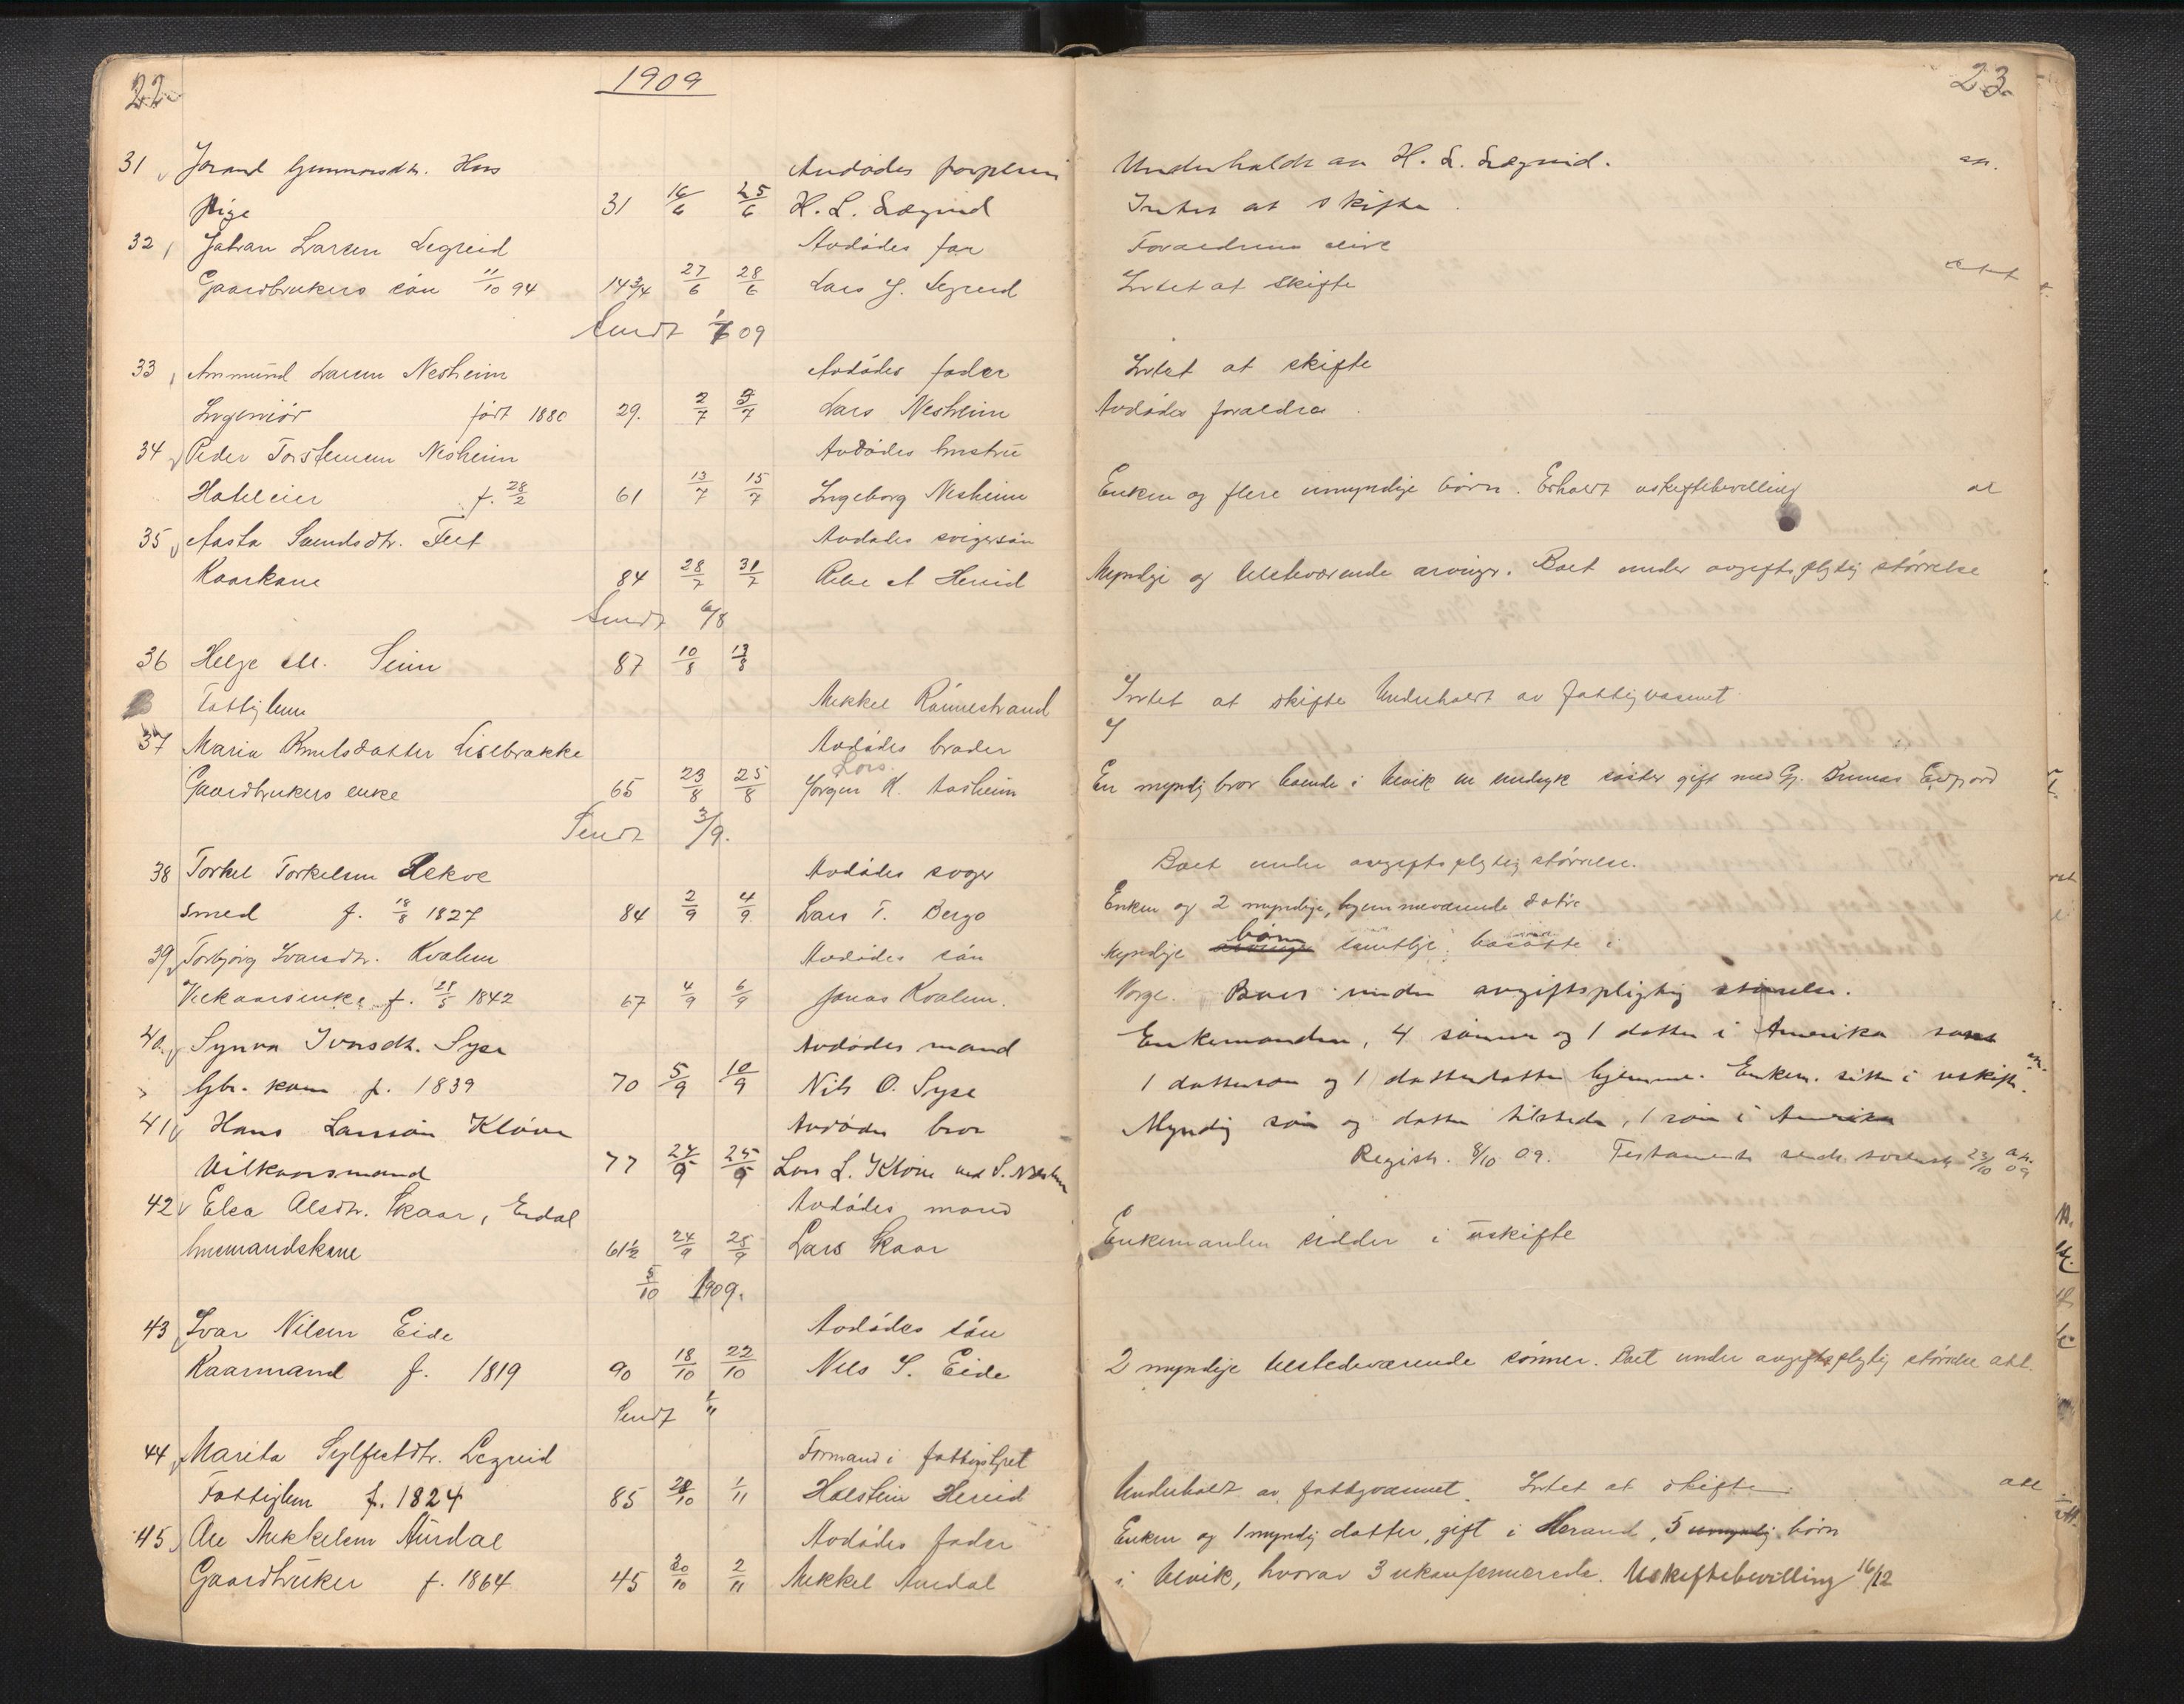 22
1909
31 Jorand Gunnarsdtr. Hus Avdødes
Pige 31 16/6 25/6 H. L. Lægreid
32 Johan Larsen Legreid Avdødes far
Gaardbrukers søn 11/10 94 14 3/4 27/6 28/6 Lars J. Legreid
Sendt 1/7 09
33 Ammund Larsen Nesheim Avdødes fader
Ingeniør født 1880 29. 2/7 9/7 Lars Nesheim
34 Peder Torstensen Nesheim Avdødes hustru
Hoteleier f. 28/2 61 13/7 15/7 Ingeborg Nesheim
35 Aasta Svendsdtr. Feet Avdødes svigersøn
Kaarkone 84 28/7 31/7 Hereid
Sendt 6/8
36 Helge M. Seim 87 10/8 13/8
Fattiglem Mikkel Rønnestrand
37 Maria Knutsdatter Lislebrække Avdødes broder
Lars.
Gaardbrukers enke 65 23/8 25/8 Jørgen K. Aasheim
Sendt 3/9.
38 Torkel Torkelsen Lekve Avdødes svoger
Smed f. 18/8 1827 84 2/9 4/9 Lars T. Bergo
39 Torbjørg Ivarsdtr. Kvalem Avdødes søn
Vilkaarsenke f. 28/5 1842 67 4/9 6/9 Jonas Kvalem.
40. Synva Iversdtr. Syse Avdødes mand
Gbr. kone f. 1839 70 5/9 10/9 Nils O. Syse
41 Hans Larssøn Kløve Avdødes bror
Vilkaarsmand 77 24/9 25/9 Lars L. Kløve ved S.
42 Elsa Olsdtr. Skaar, Erdal Avdødes mand
husmandskone 61½ 24/9 28/9 Lars Skaar
5/10 1909.
43 Ivar Nilsen Eide Avdødes søn
Kaarmand f. 1819 90 18/10 22/10 Nels I. Eide
Sendt 1/11
44 Marita Sylfestdtr. Legreid Formand i fattigstyret
Fattiglem f. 1824 85 28/10 1/11 Holstein Hereid
45 Ole Mikkelsen Aurdal Avdødes fader
Gaardbruker f. 1864 45 30/10 2/11 Mikkel Aurdal
23.
Underholdt av H. L. Lægreid.
Intet at skifte.
Foraldrene
Intet at skifte
Intet at skifte
Avdødes foraldre.
Enken og flere umyndige børn. Erholdt uskiftebevilling
Myndige og tilstedeværende arvinger. Boet under avgiftspligtig størrelse
Intet at skifte Underholdt av fattigvæsenet
En myndig bror boende i Ulvik en søster gift med G. Eidfjord
Boet under avgiftspligtig størrelse.
Enken og 2 myndige, hjemmeværende døtre
Myndige børn samtlige bosatte i
Norge. Boet under avgiftspligtig størrelse.
Enkemanden, 4 sønner og 1 datter i Amerika samt
1 dattersøn og 1 datterdatter hjemme. Enkem. sitter i uskifte.
Myndig søn og datter tilstede, 1 søn i Amerika
Registr. 8/10 09. Testament sendt 23/10 09
Enkemanden sidder i uskifte
2 myndige tilstedeværende sønner. Boet under avgiftspligtig størrelse
Underholdt av fattigvæsenet. Intet at skifte.
Enken og 1 myndig datter, gift i Herand, 5 umyndig børn
i Ulvik, hvorav 3 ukonfirmerede. Uskiftebevilling 16/12